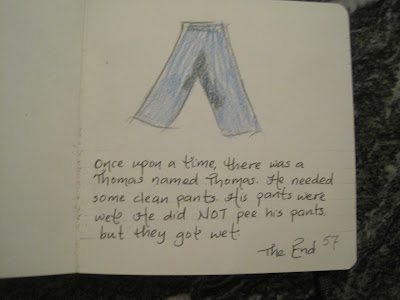 Once upon a time, there was a
Thomas named Thomas. He needed
some clean pants. His pants were
wet. He did NOT pee his pants.
but they got wet.
The End 57